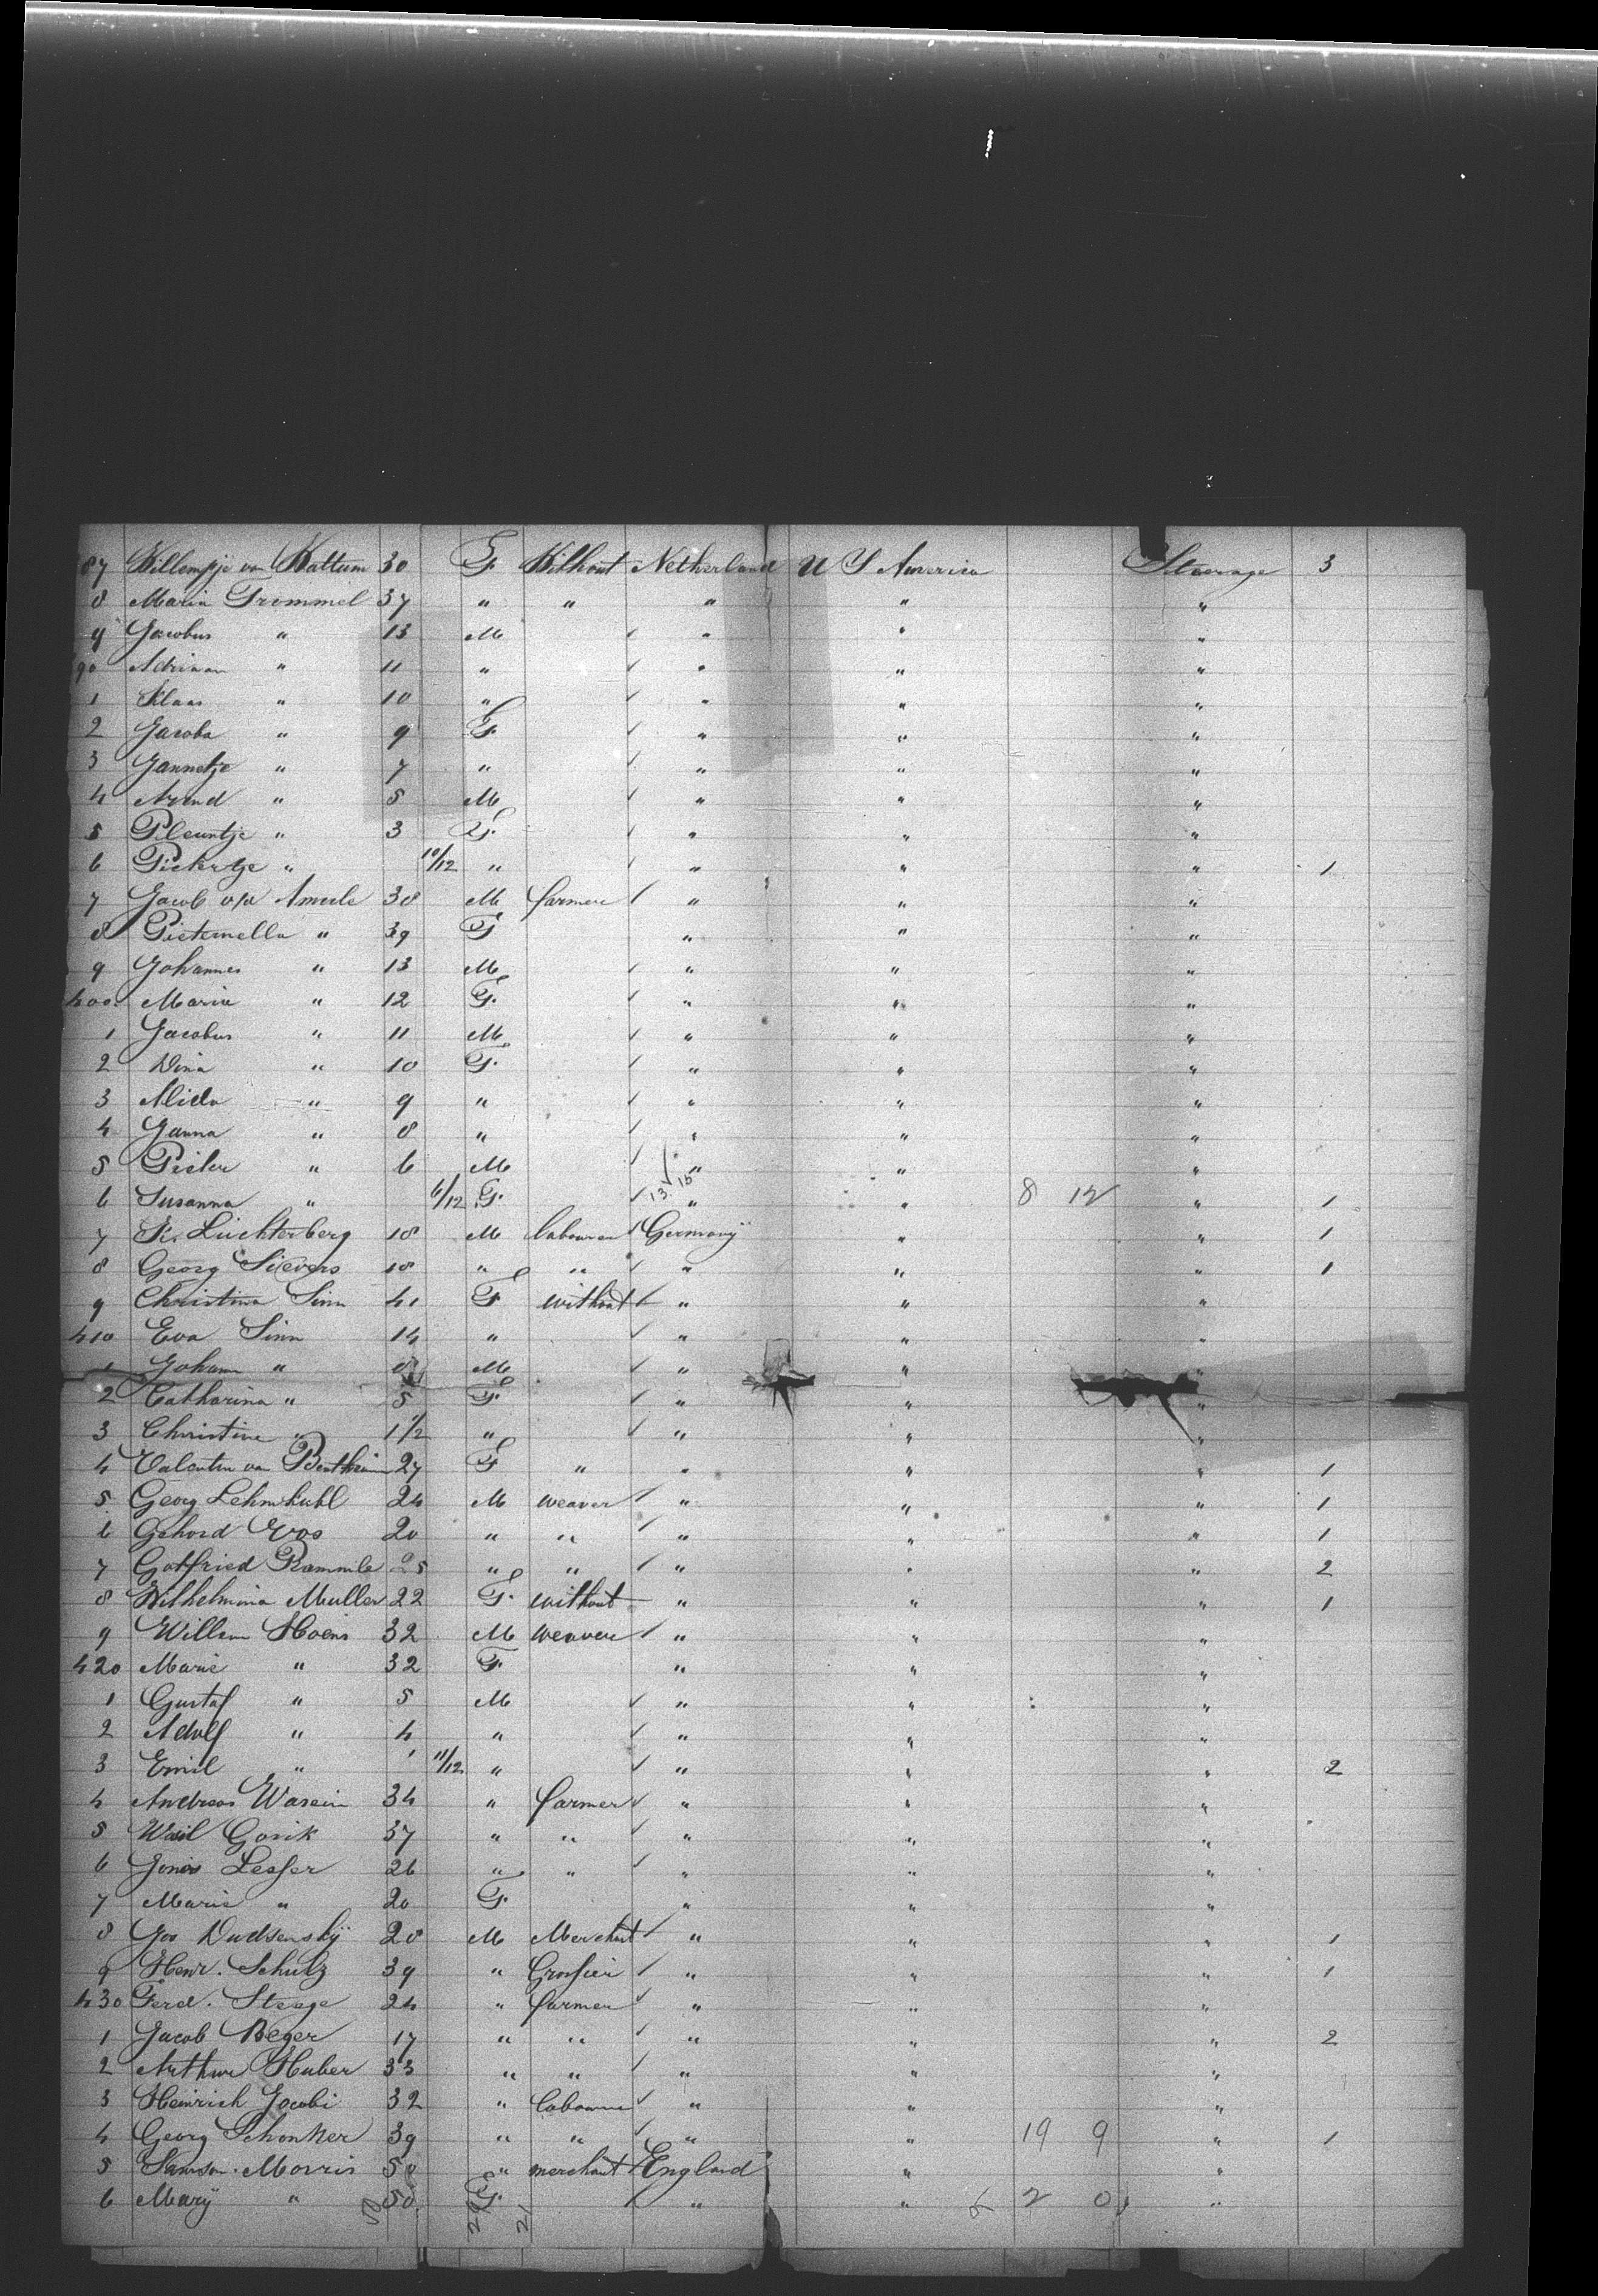 87 Willempje van Wattum 30 F. Without Netherland U S America Steerage 3
8 Maria Trommel 37 " " " " "
9 Jacobus " 13 M ✓ " " "
90 Adriaan " 11 " ✓ " " "
1 Klaas " 10 " ✓ " " "
2 Jacoba " 9 F. ✓ " " "
3 Jannetje " 7 " ✓ " " "
4 Arend " 5 M ✓ " " "
5 Pleuntje " 3 F. ✓ " " "
6 Pietertje " 10/12 " ✓ " " " 1
7 Jacob v/d 38 M farmer ✓ " " "
8 " 39 F " " "
9 Johannes " 13 M ✓ " " "
400. Maria " 12 F. ✓ " " "
1 Jacobus " 11 M ✓ " " "
2 Dina " 10 F. ✓ " " "
3 Alida " 9 " ✓ " " "
4 Janna " 8 " ✓ " " "
5 Pieter " 6 M ✓ " " "
6 Susanna " 6/12 F. ✓ 13 15 " " 8 12 " 1
7 Fr. Luchterberg 18 M labourer ✓ Germany " " 1
8 Georg Sievers 18 " " ✓ " " " 1
9 Christina Sinn 41 F without ✓ " " "
410 Eva Sinn 14 " ✓ " " "
1 Johann " 8 M ✓ " " "
2 Catharina " 5 F ✓ " " "
3 Christine " 1 1/2 " ✓ " " "
4 Valentin van Bentheim 27 F " " " " 1
5 Georg Lehmkuhl 24 M weaver ✓ " " " 1
6 Gehord Vos 20 " " ✓ " " " 1
7 Gottfried 25 " " ✓ " " " 2
8 Wilhelmina Muller 22 F. without " " " 1
9 Willem Hoens 32 M weaver ✓ " " "
420 Marie " 32 F. " " "
1 Gustaf " 5 M ✓ " " "
2 Adolf " 4 " ✓ " " "
3 Emil " 11/12 " ✓ " " " 2
4 Andreas Wasein 34 " farmer ✓ " " "
5 Wasil Gorik 37 " " ✓ " " "
6 Lesser 26 " " ✓ " " "
7 Marie " 20 F. " " "
8 Jos Dudsenskÿ 28 M Merchant ✓ " " " 1
9 Henr. Schulz 39 " ✓ " " " 1
430 Ferd. Steege 24 " farmer ✓ " " "
1 Jacob Beger 17 " " ✓ " " " 2
2 Arthur Huber 33 " " ✓ " " "
3 Heinrich Jacobi 32 " labourer ✓ " " "
4 Georg Schonker 39 " " ✓ " " 19 9 " 1
5 Samson Morris 50 " merchant ✓ England " "
6 Marÿ " 50. F. ✓ " " 2 0 "
21